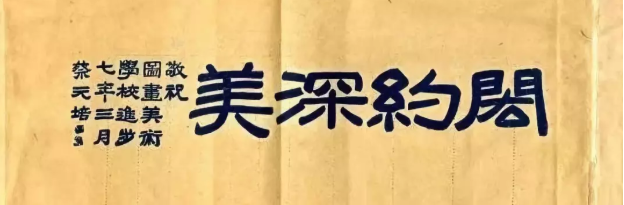 閎約深美
敬祝
圖畫美術
學校進步
七年三月
蔡元培